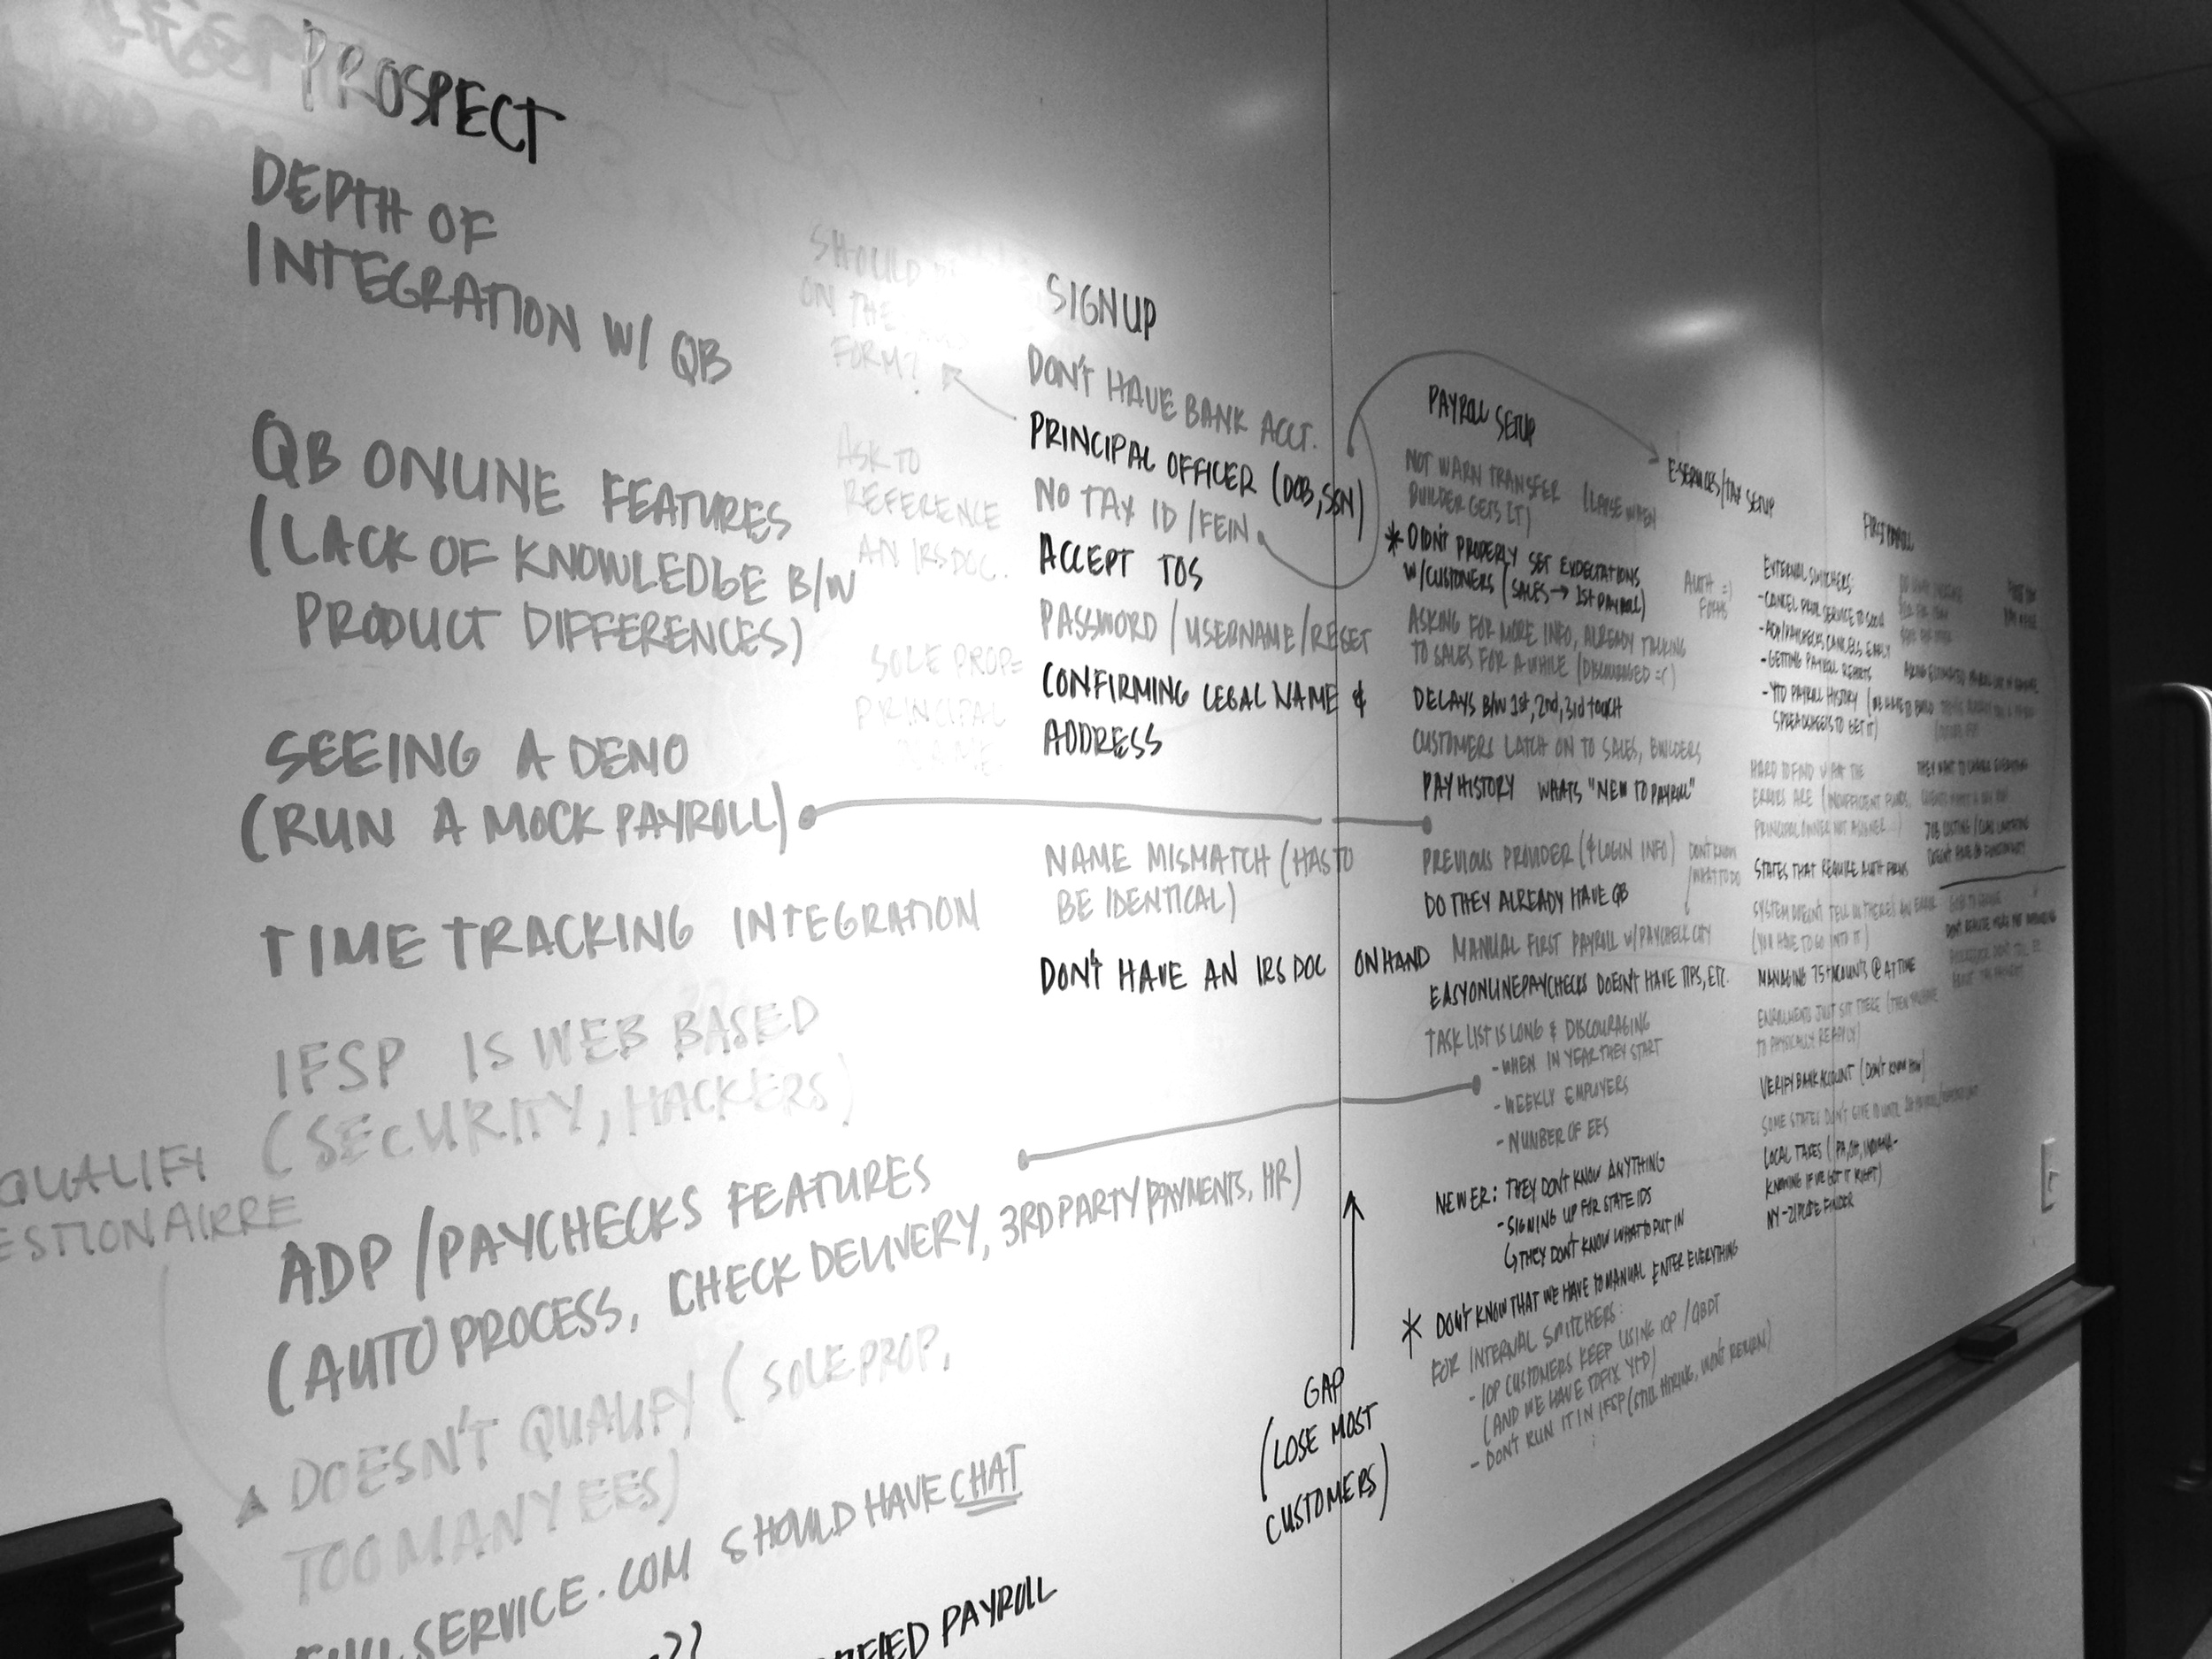 PROSPECT
DEPTH OF
INTEGRATION W/ QB
QB ONLINE FEATURES
(LACK OF KNOWLEDGE B/W
PRODUCT DIFFERENCES)
SEEING A DEMO
(RUN A MOCK PAYROLL)
TIME TRACKING INTEGRATION
IFSP IS WEB BASED
(SECURITY, HACKERS)
QUALIFY
ESTIONAIRRE
ADP/PAYCHECKS FEATURES
(AUTO PROCESS, CHECK DELIVERY, 3RD PARTY PAYMENTS, HR)
DOESN'T QUALIFY (SOLE PROP,
TOO MANY EES)
SERVICE.COM SHOULD HAVE CHAT
??
PAYROLL
SHOULD
ON THE
FORM?
ASK TO
REFERENCE
AN IRS DOC.
SOLE PROP=
PRINCIPAL
SIGN UP
DON'T HAVE BANK ACCT.
PRINCIPAL OFFICER (DOB, SSN)
NO TAX ID/FEIN
ACCEPT TOS
PASSWORD/USERNAME/RESET
CONFIRMING LEGAL NAME &
ADDRESS
NAME MISMATCH (HAS TO
BE IDENTICAL)
DON'T HAVE AN IRS DOC ON HAND
GAP
(LOSE MOST
CUSTOMERS)
PAYROLL SETUP
NOT WARM TRANSFER (LAPSE WHEN
BUILDER GETS IT)
* DIDN'T PROPERLY SET EXPECTATIONS
W/CUSTOMERS (SALES → 1ST PAYROLL)
ASKING FOR MORE INFO, ALREADY TALKING
TO SALES FOR A WHILE (DISCOURAGED =()
DELAYS B/W 1st, 2nd, 3rd touch
CUSTOMERS LATCH ON TO SALES, BUILDERS
PAY HISTORY WHATS "NEW TO PAYROLL"
PREVIOUS PROVIDER (& LOGIN INFO)
DON'T KNOW
WHAT TO DO
DO THEY ALREADY HAVE QB
MANUAL FIRST PAYROLL W/PAYCHECK CITY
EASYONLINEPAYCHECKS DOESN'T HAVE TIPS, ETC.
TASK LIST IS LONG & DISCOURAGING
- WHEN IN YEAR THEY START
- WEEKLY EMPLOYERS
- NUMBER OF EES
NEWER: THEY DON'T KNOW ANYTHING
- SIGNING UP FOR STATE IDS
THEY DON'T KNOW WHAT TO PUT IN
* DON'T KNOW THAT WE HAVE TO MANUAL ENTER EVERYTHING
FOR INTERNAL SWITCHERS:
- IOP CUSTOMERS KEEP USING IOP/QBDT
(AND WE HAVE TO FIX YTD)
- DON'T RUN IT IN IFSP (STILL HIRING, WON'T RETURN)
E-SERVICES/TAX SETUP
AUTH =)
EXTERNAL SWITCHERS:
- CANCEL PRIOR SERVICE TO SOON
- ADP/PAYCHECKS CANCELS EARLY
- GETTING PAYROLL REPORTS
- YTD PAYROLL HISTORY (WE HAVE TO BUILD
SPREADSHEETS TO GET IT)
HARD TO FIND WHAT THE
ERRORS ARE (INSUFFICIENT FUNDS,
PRINCIPAL OWNER NOT A SIGNER
STATES THAT REQUIRE AUTH FORMS
SYSTEM DOESN'T TELL US THERE'S AN ERROR
(YOU HAVE TO GO INTO IT)
MANAGING 75+ ACCOUNTS @ A TIME
ENROLLMENTS JUST SIT THERE (THEN
TO PHYSICALLY REAPPLY)
VERIFY BANK ACCOUNT (DON'T KNOW HOW)
SOME STATES DON'T GIVE ID UNTIL
LOCAL TAXES (PA, OH, INDIANA-
KNOWING IF I'VE GOT IT RIGHT)
NY - ZIPCODE FINDER
FIRST PAYROLL
THEY WANT TO CHANGE EVERYTHING
JOB COSTING/